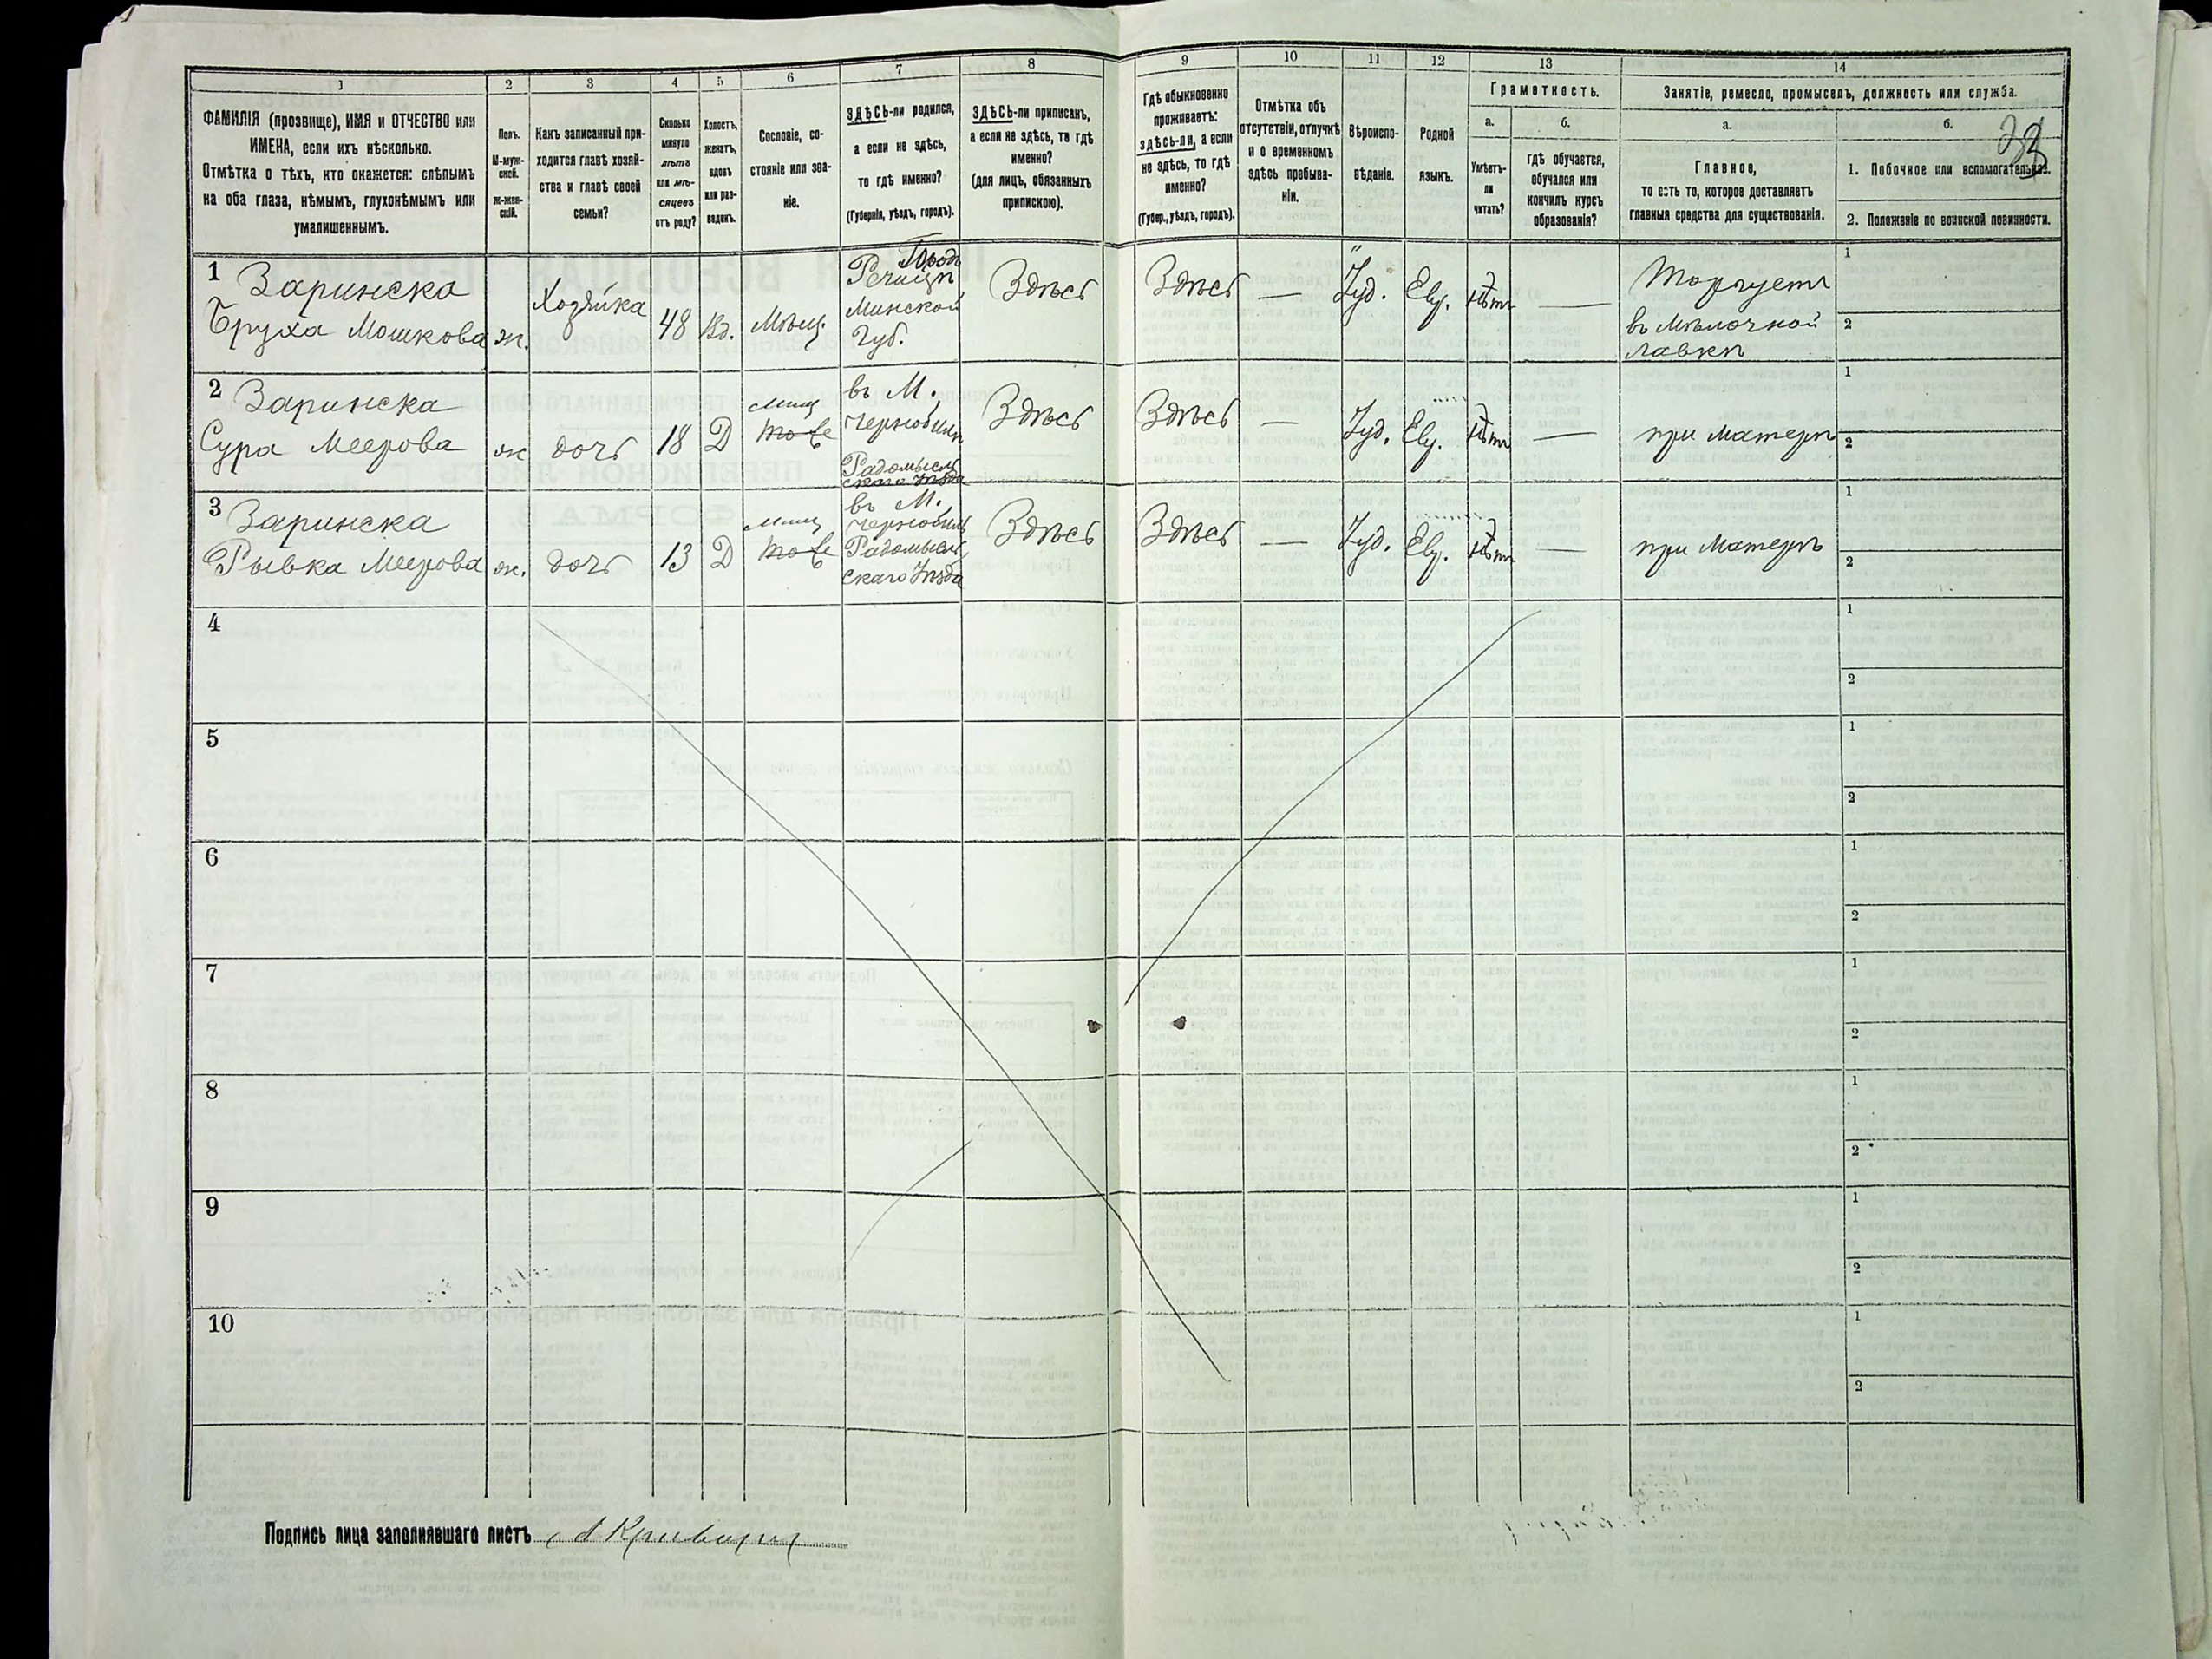 1 2 3 4 5 6 7 8 9 10 11 12 13 14
ФАМИЛІЯ (прозвище), ИМЯ и ОТЧЕСТВО или
ИМЕНА, если ихъ нѣсколько.
Отмѣтка о тѣхъ, кто окажется: слѣпымъ
на оба глаза, нѣмымъ, глухонѣмымъ или
умалишеннымъ.
Полъ.
М-муж-
ской.
Ж-жен-
скій.
Какъ записанный при-
ходится главѣ хозяй-
ства и главѣ своей
семьи?
Сколько
минуло
лѣтъ
или мѣ-
сяцевъ
отъ роду?
Холостъ,
женатъ,
вдовъ
или раз-
веденъ.
Сословіе, со-
стояніе или зва-
ніе.
ЗДѢСЬ-ли родился,
а если не здѣсь,
то гдѣ именно?
(Губернія, уѣздъ, городъ).
ЗДѢСЬ-ли приписанъ,
а если не здѣсь, то гдѣ
именно?
(для лицъ, обязанныхъ
припискою).
Гдѣ обыкновенно
проживаетъ:
здѣсь-ли, а если
не здѣсь, то гдѣ
именно?
(Губер., уѣздъ, городъ).
Отмѣтка объ
отсутствіи, отлучкѣ
и о временномъ
здѣсь пребыва-
ніи.
Вѣроиспо-
вѣданіе.
Родной
языкъ.
Грамотность.
а.
Умѣетъ-
ли
читать?
б.
гдѣ обучается,
обучался или
кончилъ курсъ
образованія?
Занятіе, ремесло, промыселъ, должность или служба.
а.
Главное,
то есть то, которое доставляетъ
главныя средства для существованія.
б.
1. Побочное или вспомогательное.
2. Положеніе по воинской повинности.
1
Заринска
Бруха Мошкова
ж.
Хозяйка
48
Вд.
Мѣщ.
Городъ
Речицѣ
Минской
Губ.
Здѣсь
Здѣсь
—
Іуд.
Евр.
Нѣтъ
—
Торгуетъ
въ Мѣлочной
лавкѣ
1
2
2
Заринска
Сура Меерова
ж
дочь
18
Д
мѣщ
тоже
въ М.
Чернобылѣ
Радомысль
скаго Уѣзда
Здѣсь
Здѣсь
—
Іуд.
Евр.
Нѣтъ
—
при Матерѣ
1
2
3
Заринска
Рывка Меерова
ж.
дочь
13
Д
мѣщ
тоже
въ М.
Чернобылѣ
Радомысль
скаго Уѣзда
Здѣсь
Здѣсь
—
Іуд.
Евр.
Нѣтъ
—
при Матерѣ
1
2
4
1
2
5
1
2
6
1
2
7
1
2
8
1
2
9
1
2
10
1
2
Подпись лица заполнявшаго листъ